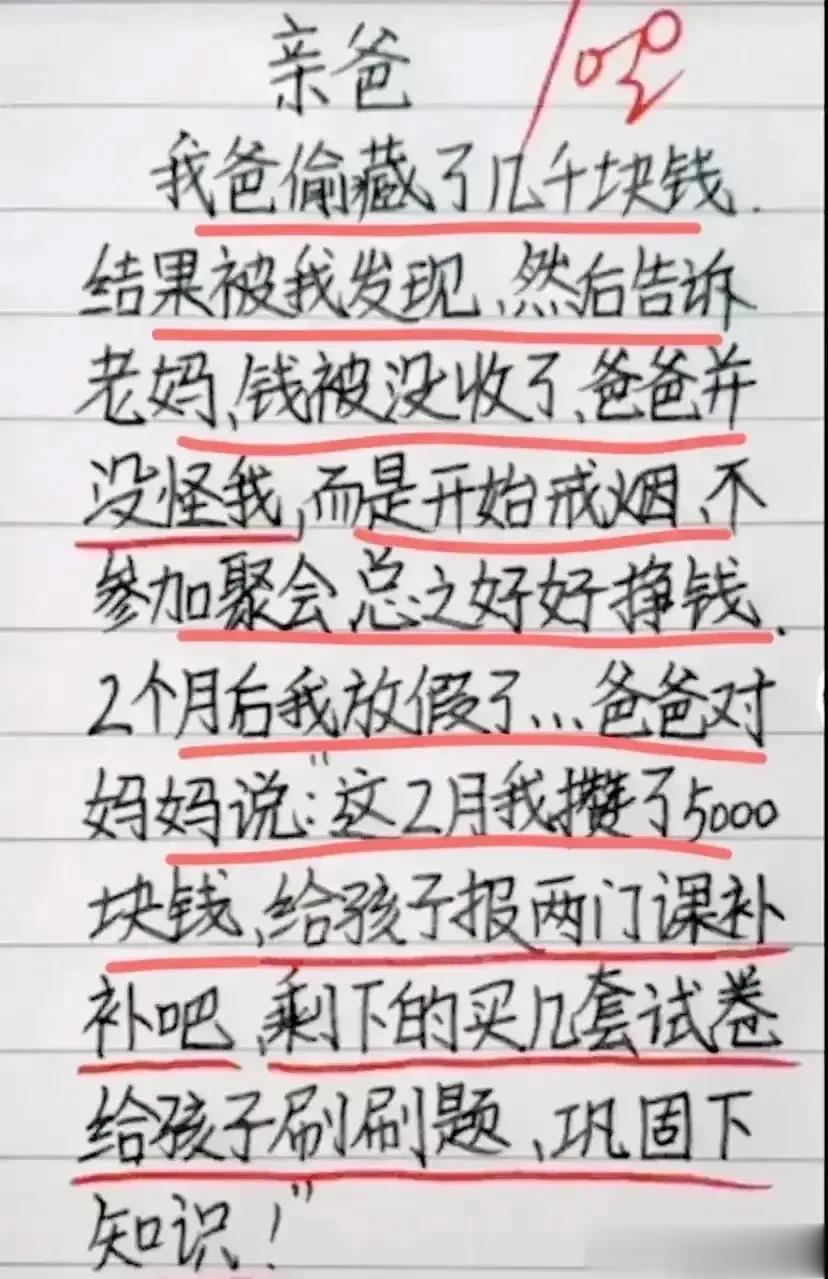 亲爸
我爸偷藏了几千块钱.
结果被我发现、然后告诉
老妈、钱被没收了、爸爸并
没怪我,而是开始戒烟、不
参加聚会总之好好挣钱.
2个月后我放假了...爸爸对
妈妈说:“这2月我攒了5000
块钱、给孩子报两门课补
补吧、剩下的买几套试卷
给孩子刷刷题、巩固下
知识!”